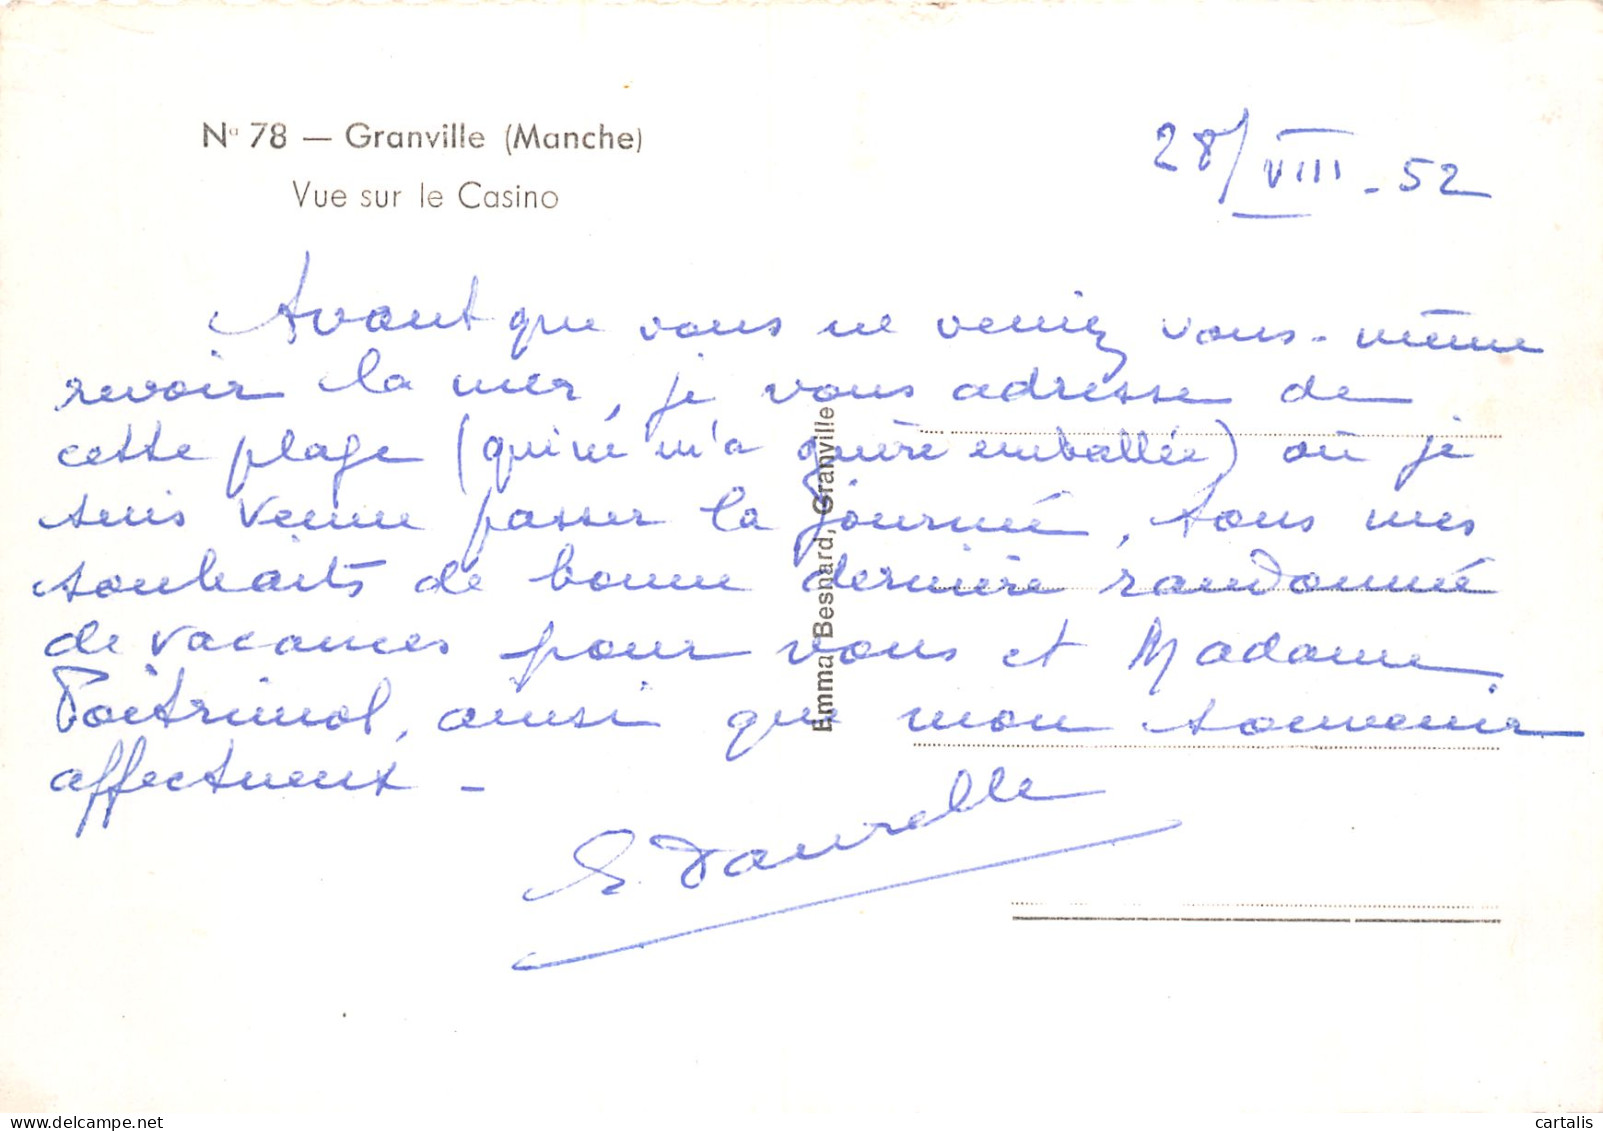 Nº 78 — Granville (Manche)
Vue sur le Casino
28/VIII - 52
Avant que vous ne veniez vous-même
revoir la mer, je vous adresse de
cette plage (qui ne m'a guère emballée) où je
suis venue passer la journée, tous mes
souhaits de bonne dernière randonnée
de vacances pour vous et Madame
Poitrimol, ainsi que mon souvenir
affectueux -
E. Daurelle
Emma Besnard, Granville
cartalis
delcampe.net